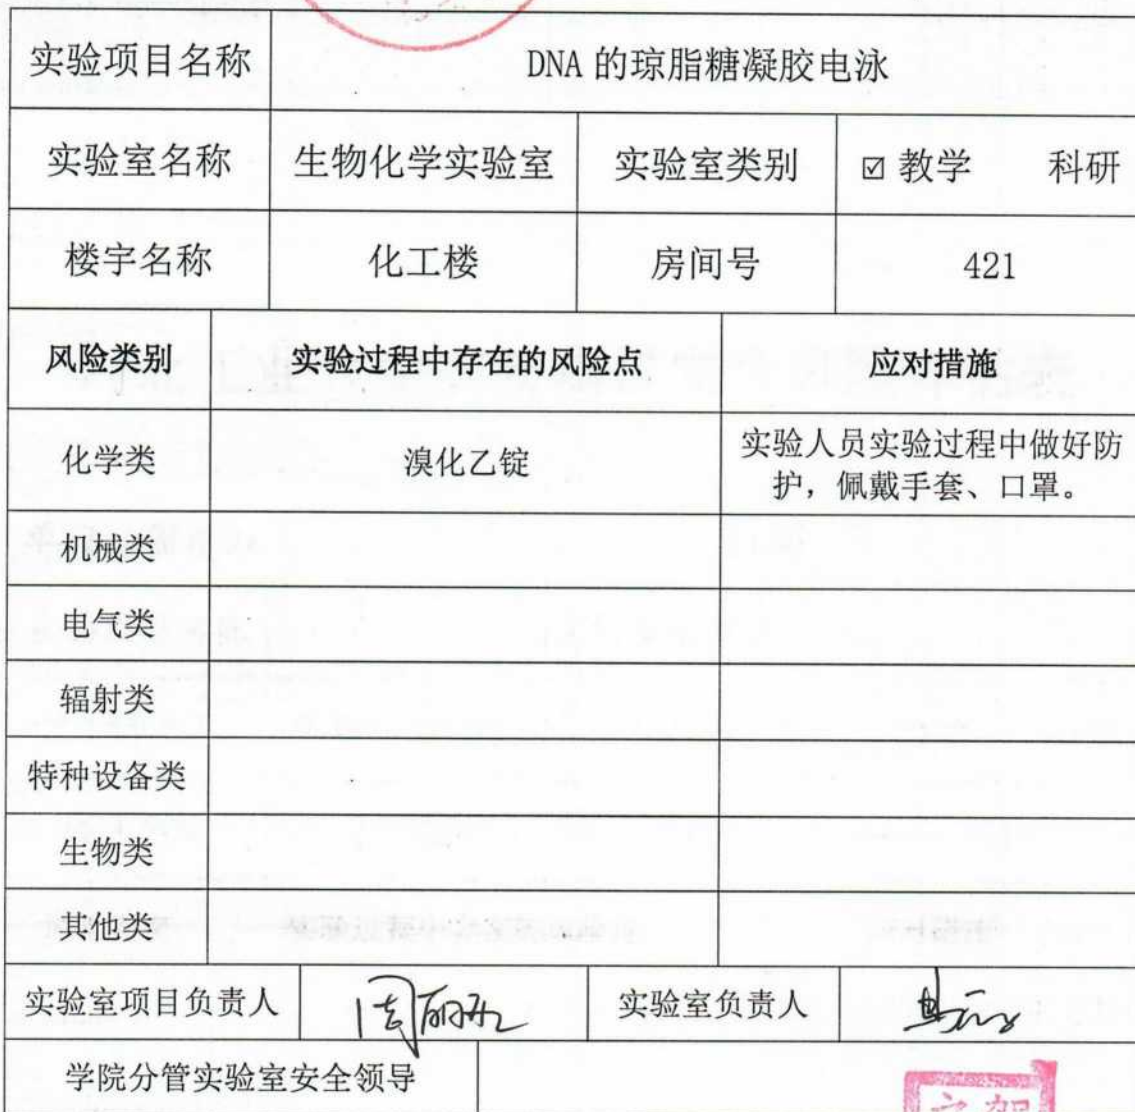 实验项目名称 DNA 的琼脂糖凝胶电泳
实验室名称 生物化学实验室 实验室类别 ☑ 教学 科研
楼宇名称 化工楼 房间号 421
风险类别 实验过程中存在的风险点 应对措施
化学类 溴化乙锭 实验人员实验过程中做好防
护，佩戴手套、口罩。
机械类
电气类
辐射类
特种设备类
生物类
其他类
实验室项目负责人 实验室负责人
学院分管实验室安全领导